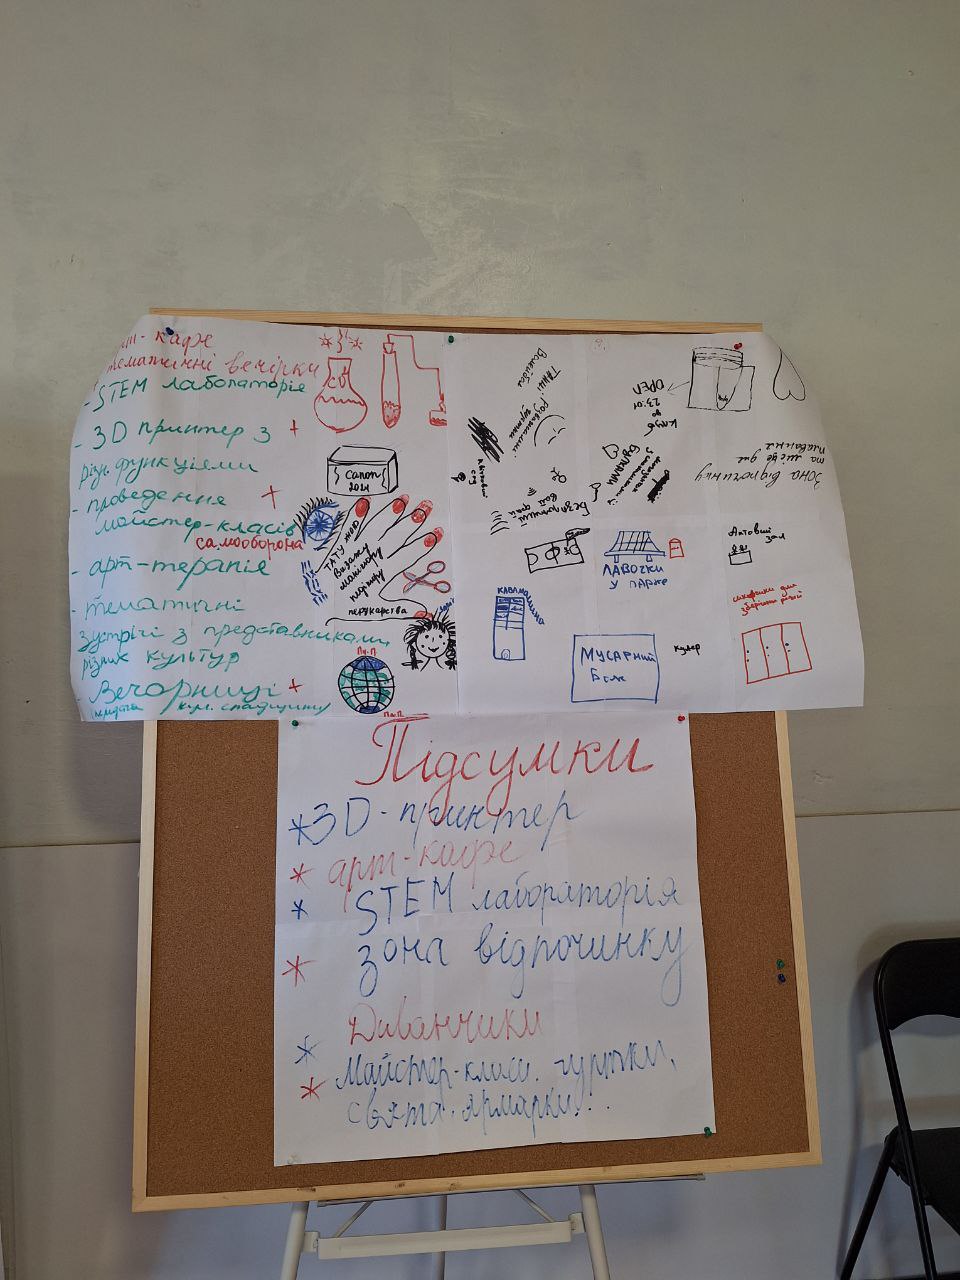 арт-кафе
+ тематичні вечірки
- STEM лабораторія
- 3D принтер з +
різн. функціями
- проведення +
майстер-класів
самооборона
- арт-терапія
- тематичні
зустрічі з представниками
різних культур
- Вечорниці +
кул. спадщину
Салют
2024
ТАТУ
Візажу
манікюру
педікюру
перукарства
Волейбол
Танці
розважальні
гуртки
Безплатний
вай фай
OPEN
23.01
Клуб
Зона відпочинку
та місце для
плавання
ЛАВОЧКИ
У ПАРКЕ
Актовий
зал
КАВАМАШИНА
МУСАРНИЙ
Бак
кулер
Підсумки
* 3D-принтер
* арт-кафе
* STEM лабораторія
* зона відпочинку
Диванчики
* Майстер-класи, гуртки,
* свята. ярмарки!..